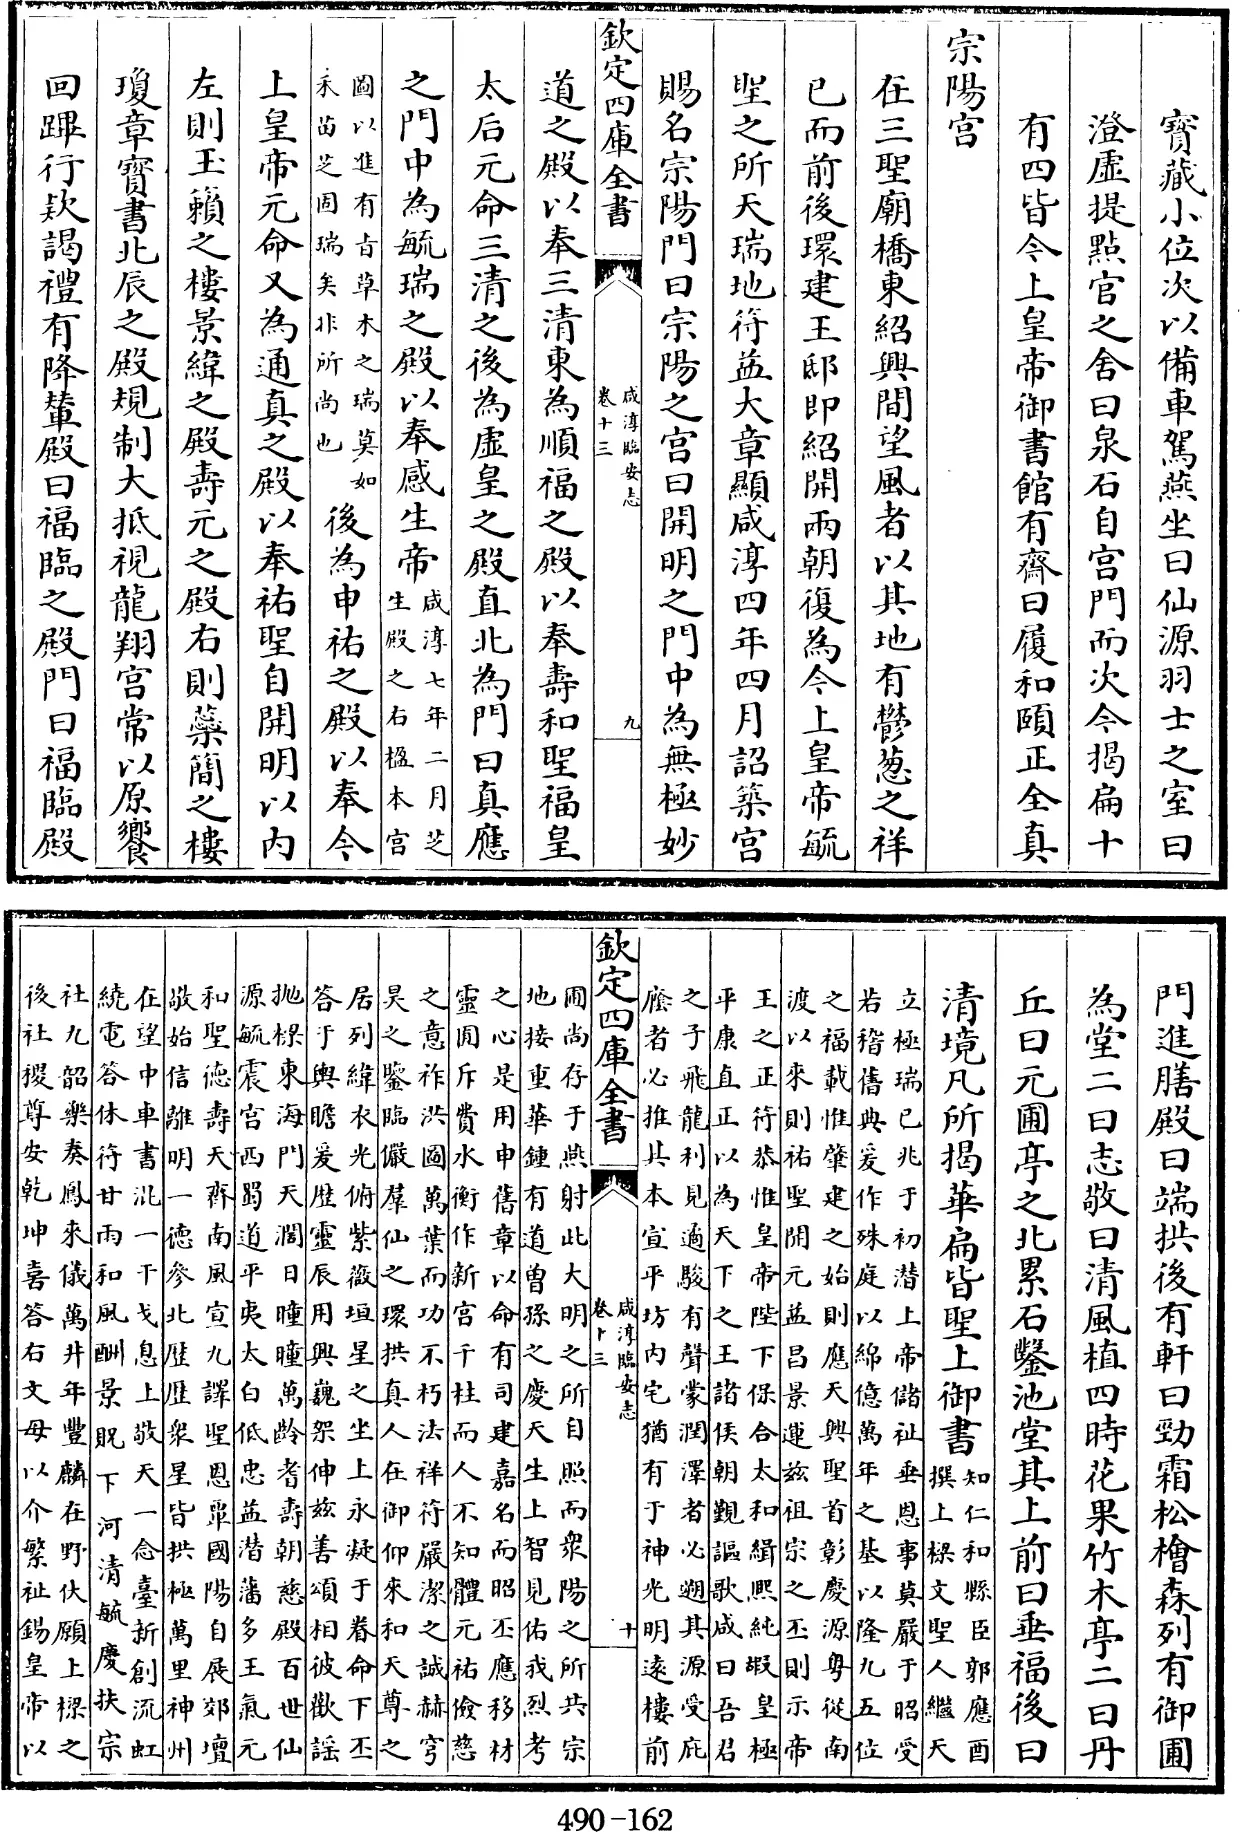 寳藏小位次以備車駕燕坐曰仙源羽士之室曰
澄虛提㸃官之舍曰泉石自宫門而次今揭扁十
有四皆今上皇帝御書館有齋曰履和頤正全真
宗陽宫
在三聖廟橋東紹興間望風者以其地有鬱葱之祥
已而前後環建王邸即紹開兩朝復為今上皇帝毓
聖之所天瑞地符益大章顯咸淳四年四月詔築宫
賜名宗陽門曰宗陽之宫曰開明之門中為無極妙
欽定四庫全書
咸淳臨安志
卷十三
九
道之殿以奉三清東為順福之殿以奉壽和聖福皇
太后元命三清之後為虛皇之殿直北為門曰真應
之門中為毓瑞之殿以奉感生帝咸淳七年二月芝生殿之右楹本宫
圖以進有旨草木之瑞莫如禾苗芝固瑞矣非所尚也後為申祐之殿以奉今
上皇帝元命又為通真之殿以奉祐聖自開明以内
左則玉籟之樓景緯之殿壽元之殿右則蘂簡之樓
瓊章寳書北辰之殿規制大抵視龍翔宫常以原饗
回蹕行欵謁禮有降輦殿曰福臨之殿門曰福臨殿
門進膳殿曰端拱後有軒曰勁霜松檜森列有御圃
為堂二曰志敬曰清風植四時花果竹木亭二曰丹
丘曰元圃亭之北累石鑿池堂其上前曰垂福後曰
清境凡所揭華扁皆聖上御書知仁和縣臣郭應酉
撰上樑文聖人繼天
立極瑞已兆于初潛上帝儲祉垂恩事莫嚴于昭受
若稽舊典爰作殊庭以綿億萬年之基以隆九五位
之福載惟肇建之始則應天興聖首彰慶源粤從南
渡以來則祐聖開元益昌景運兹祖宗之丕則示帝
王之正符恭惟皇帝陛下保合太和緝熙純嘏皇極
平康直正以為天下之王諸侯朝覲謳歌咸曰吾君
之子飛龍利見適駿有聲蒙潤澤者必遡其源受庇
廕者必推其本宣平坊内宅猶有于神光明遠樓前
欽定四庫全書
咸淳臨安志
卷十三
十
圃尚存于燕射此大明之所自照而衆陽之所共宗
地接重華鍾有道曽孫之慶天生上智見佑我烈考
之心是用申舊章以命有司建嘉名而昭丕應移材
靈囿斥費水衡作新宫千柱而人不知體元祐儉慈
之意祚洪圖萬葉而功不朽法祥符嚴潔之誠赫穹
昊之鑒臨儼羣仙之環拱真人在御仰來和天尊之
居列緯衣光俯紫薇垣星之坐上永凝于眷命下丕
答于輿瞻爰歴靈辰用興巍架伸兹善頌相彼歡謡
拋樑東海門天濶日曈曈萬齡耆壽朝慈殿百世仙
源毓震宫西蜀道平夷太白低忠益潜藩多王氣元
和聖德壽天齊南風宣九譯聖恩覃國陽自展郊壇
敬始信離明一德參北歴歴衆星皆拱極萬里神州
在望中車書混一干戈息上敬天一念臺新創流虹
繞電答休符甘雨和風酬景貺下河清毓慶扶宗
社九韶樂奏鳳來儀萬井年豐麟在野伏願上樑之
後社稷尊安乾坤喜答右文母以介繁祉錫皇帝以
490-162